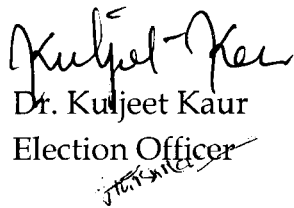 Kuljeet Kaur
Dr. Kuljeet Kaur
Election Officer